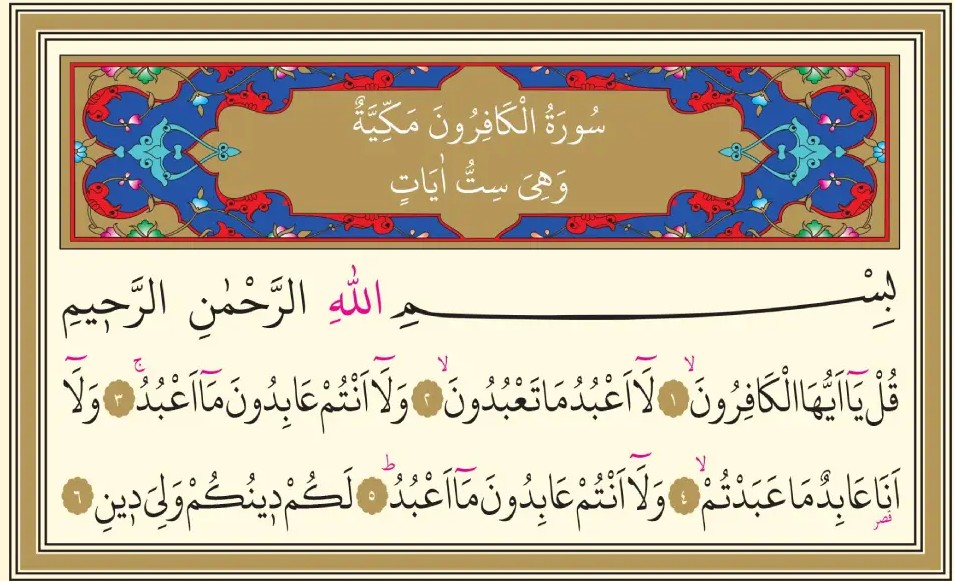 سُورَةُ الْكَافِرُونَ مَكِّيَّةٌ
وَهِيَ سِتُّ اٰيَاتٍ
بِسْمِ اللّٰهِ الرَّحْمٰنِ الرَّح۪يمِ
قُلْ يَٓا اَيُّهَا الْكَافِرُونَۙ ﴿١﴾ لَٓا اَعْبُدُ مَا تَعْبُدُونَۙ ﴿٢﴾ وَلَٓا اَنْتُمْ عَابِدُونَ مَٓا اَعْبُدُۚ ﴿٣﴾ وَلَٓا
اَنَا۬ عَابِدٌ مَا عَبَدْتُمْۙ ﴿٤﴾ وَلَٓا اَنْتُمْ عَابِدُونَ مَٓا اَعْبُدُۜ ﴿٥﴾ لَكُمْ د۪ينُكُمْ وَلِيَ د۪ينِ ﴿٦﴾
قصر